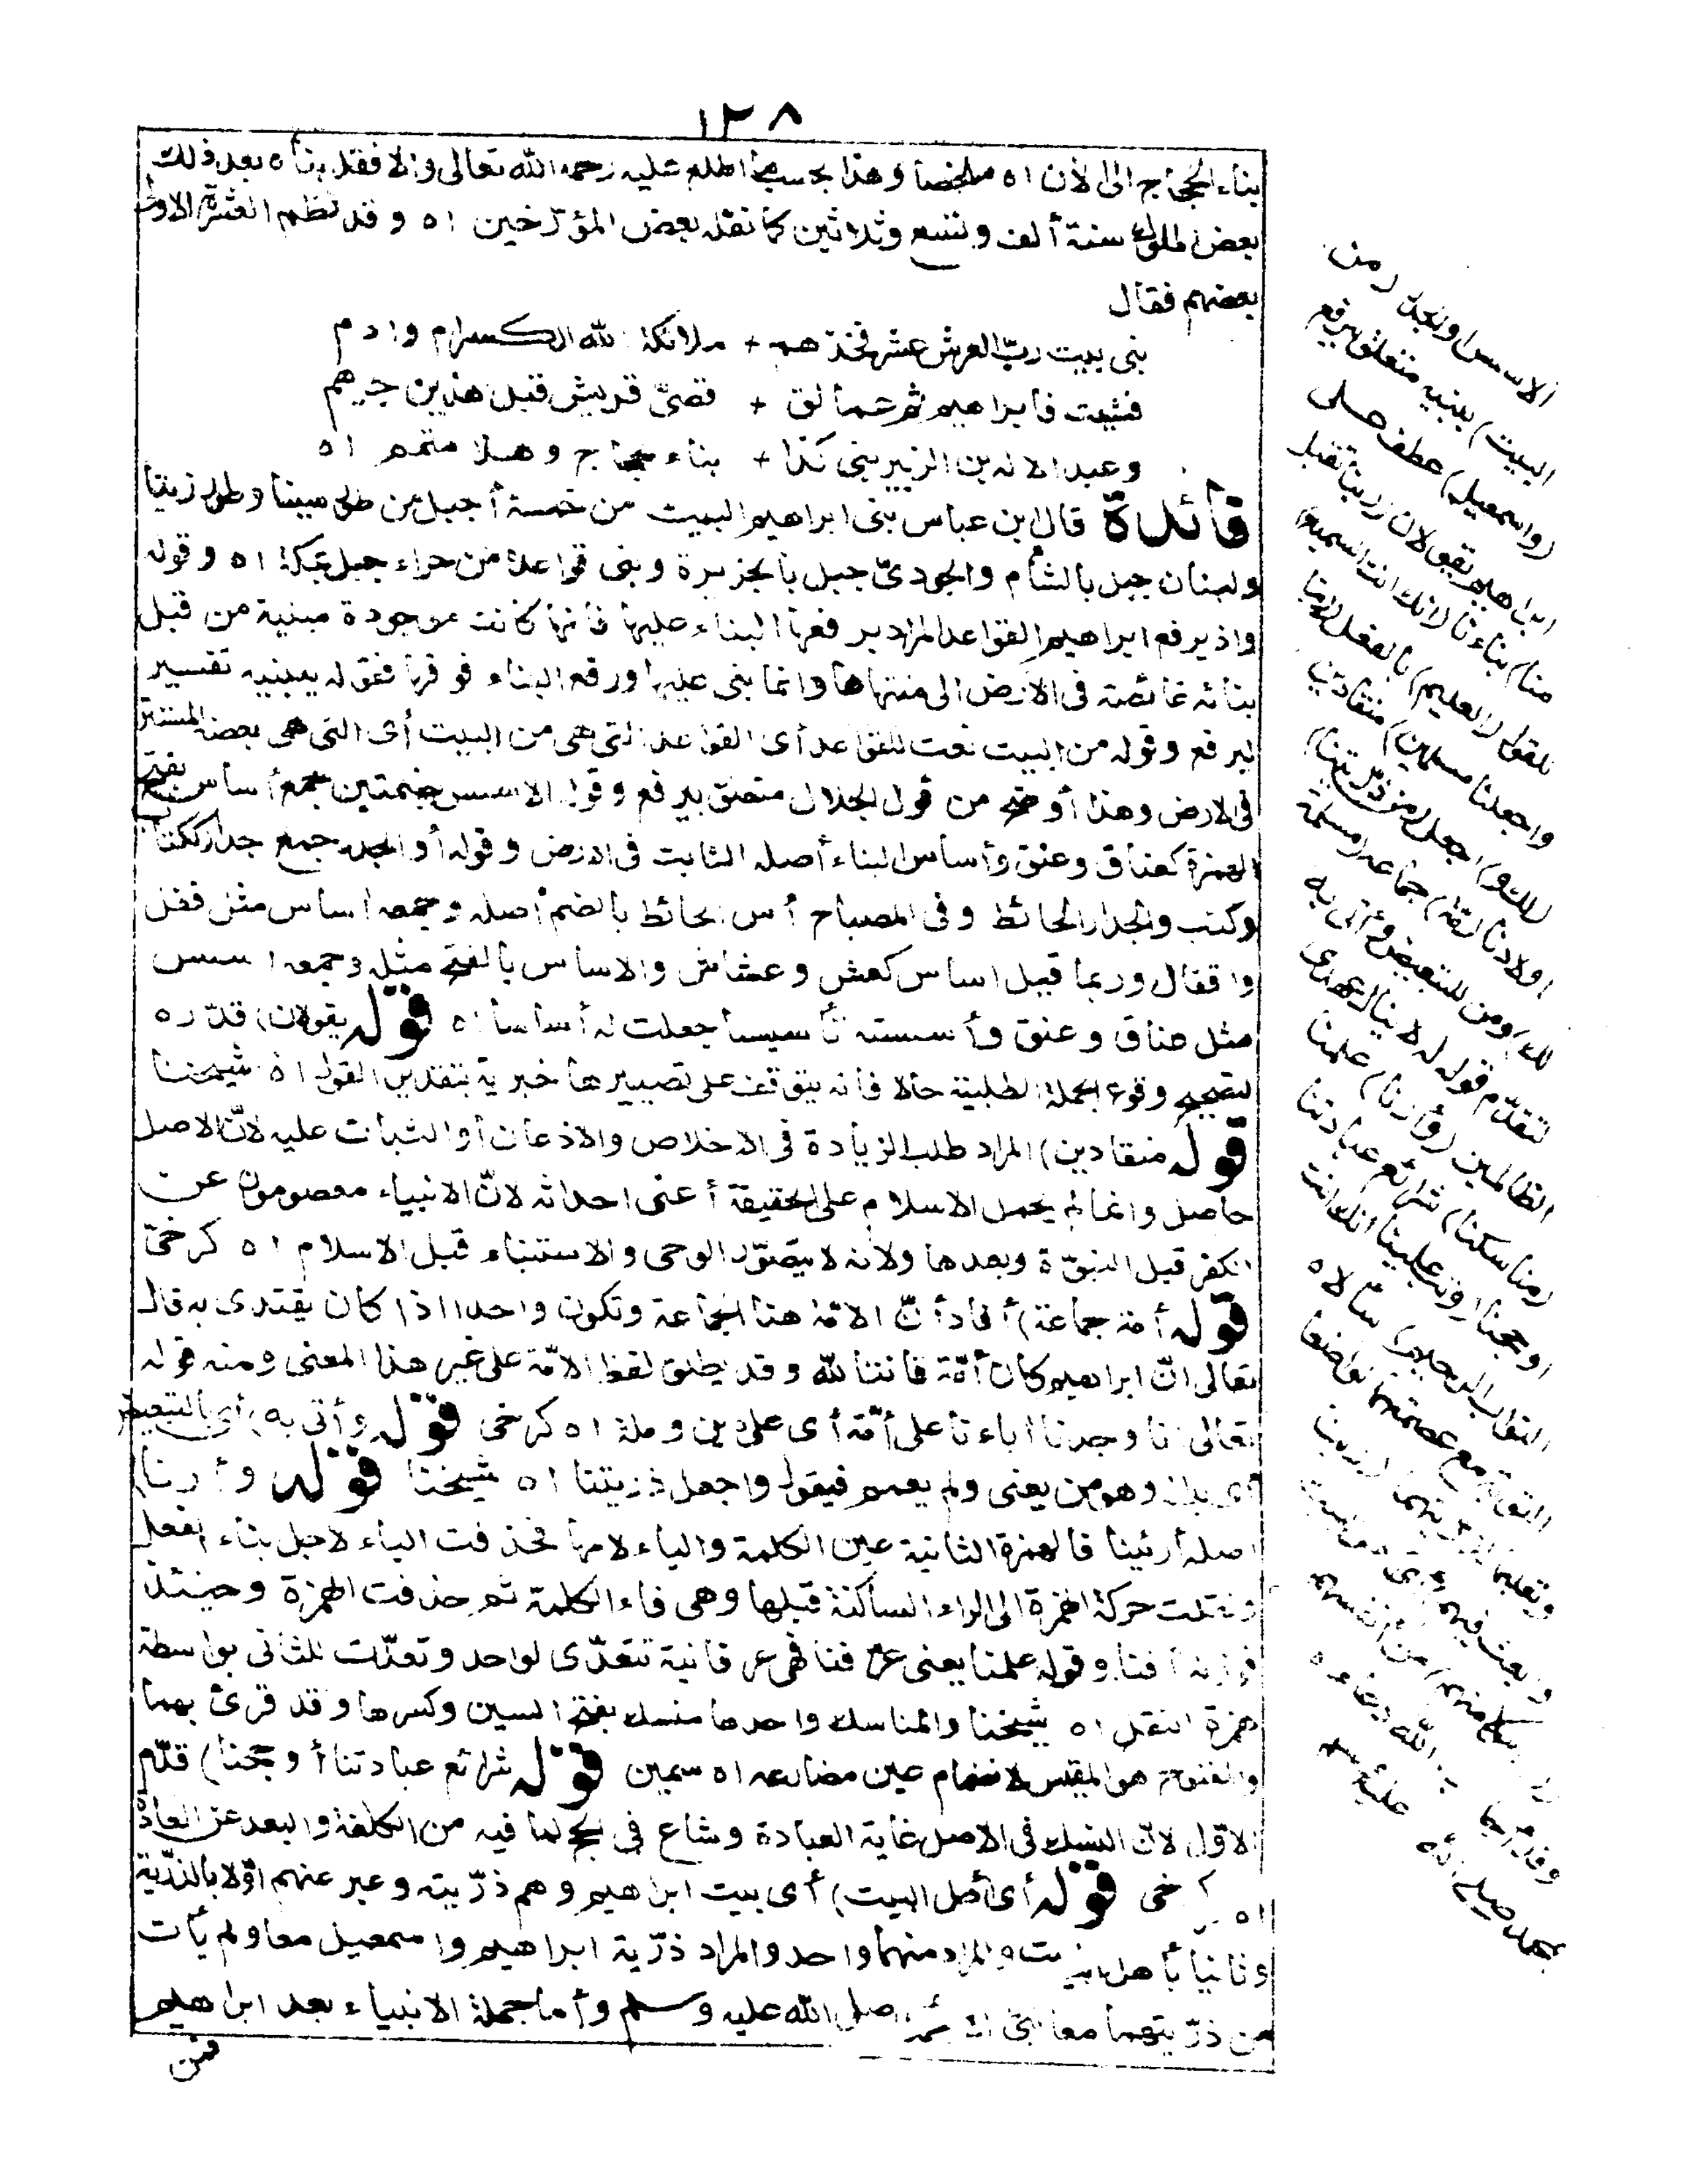 ١٣٨
بناء الحجاج الى الأن اه ملخصا وهذا بحسب ما اطلع عليه رحمه الله تعالى والا فقد بناه بعد ذلك
بعض الملوك سنة ألف وتسع وثلاثين كما نقله بعض المؤرّخين اه وقد نظم العشرة الاول
بعضهم فقال
بنى بيت ربّ العرش عشر فخذهم + ملائكة الله الكسرام وادم
فشيت فابراهيم ثم عمالق + قصىّ قريش قبل هذين جرهم
وعبد الاله بن الزبير بنى كذا + بناء حجاج وهذا متمم اه
فائدة قال بن عباس بنى ابراهيم البيت من خمسة أجبل من طور سينا وطور زيتا
ولبنان جبل بالشأم والجودىّ جبل بالجزيرة وبنى قواعده من حراء جبل بمكة اه وقوله
واذ يرفع ابراهيم القواعد المراد برفعها البناء عليها فانها كانت موجودة مبنية من قبل
بنائه غائصة فى الارض الى منتهاها وانما بنى عليها ورفع البناء فوقها فقوله يبنيه تفسير
ليرفع وقوله من البيت نعت للقواعد أى القواعد التى هى من البيت أى التى هى بعضه المستتر
فى الارض وهذا أوضح من قول الجلال متعلق بيرفع وقوله الاسس بضمتين جمع أساس بفتح
الهمزة كعناق وعنق وأساس البناء أصله الثابت فى الارض وقوله أو الجدر جمع جدار ككتاب
وكتب والجدار الحائط وفى المصباح أس الحائط بالضم أصله وجمعه اساس مثل قفل
واقفال وربما قيل اساس كعش وعشاش والاساس بالفتح مثله وجمعه اسس
مثل عناق وعنق وأسسته تأسيسا جعلت له أساسا اه قوله يقولان) قدّره
لتصحيح وقوع الجملة الطلبية حالا فانه يتوقف على تصييرها خبرية بتقدير القول اه شيخنا
قوله منقادين) المراد طلب الزيادة فى الاخلاص والاذعان أو الثبات عليه لانّ الاصل
حاصل وانما لم يحمل الاسلام على الحقيقة أعنى احداثه لانّ الانبياء معصومون عن
الكفر قبل النبوّة وبعدها ولانه لا يتصوّر الوحى والاستنباء قبل الاسلام اه كرخىّ
قوله أمة جماعة) أفاد أنّ الامّة هنا الجماعة وتكون واحدا اذا كان يقتدى به قال
تعالى انّ ابراهيم كان أمّة قانتا لله وقد يطلق لفظ الامّة على غير هذا المعنى ومنه قوله
تعالى انا وجدنا اباءنا على أمّة أى على دين وملة اه كرخى قوله وأتى به) أى بالتبعيض
أى بدله وهو من يعنى ولم يعمم فيقول واجعل ذريتنا اه شيخنا قوله وأرنا)
اصله أرئينا فالهمزة الثانية عين الكلمة والياء لامها فحذفت الياء لاجل بناء الفعل
ونقلت حركة الهمزة الى الراء الساكنة قبلها وهى فاء الكلمة ثم حذفت الهمزة وحينئذ
فوزنه افنا وقوله علمنا يعنى عرّفنا فهى عرفانية تتعدّى لواحد وتعدّت للثانى بواسطة
همزة النقل اه شيخنا والمناسك واحدها منسك بفتح السين وكسرها وقد قرئ بهما
والمفتوح هو المقيس لانضمام عين مضارعه اه سمين قوله شرائع عبادتنا أو حجنا) قدّم
الاوّل لانّ النسك فى الاصل غاية العبادة وشاع فى الحج لما فيه من الكلفة والبعد عن العادة
اه كرخى قوله أى أهل البيت) أى بيت ابراهيم وهم ذرّيته وعبر عنهم اوّلا بالذرّية
وثانيا بأهل البيت والمراد منهما واحد والمراد ذرّية ابراهيم واسمعيل معا ولم يأت
من ذرّيتهما معا نبى الا محمد صلى الله عليه وسلم وأما جملة الانبياء بعد ابراهيم
فمن
الاسس او الجدر (من
البيت) يبنيه متعلق بيرفع
(واسمعيل) عطف على
ابراهيم يقولان (ربنا تقبل
منا) بناءنا (انك انت السميع)
للقول (العليم) بالفعل (ربنا
واجعلنا مسلمين) منقادين
(لك و) اجعل (من ذرّيتنا)
اولادنا (امّة) جماعة (مسلمة
لك) ومن للتبعيض وأتى به
لتقدّم قوله له لا ينال عهدى
الظالمين (وأرنا) علمنا
(مناسكنا) شرائع عبادتنا
او حجنا (وتب علينا انك انت
التواب الرحيم) سألاه
التوبة مع عصمتهما تواضعا
وتعليما لذرّيتهما (ربنا
وابعث فيهم) أى اهل البيت
(رسولا منهم) من انفسهم
وقد اجاب الله دعاءه
بمحمد صلى الله عليه وسلم